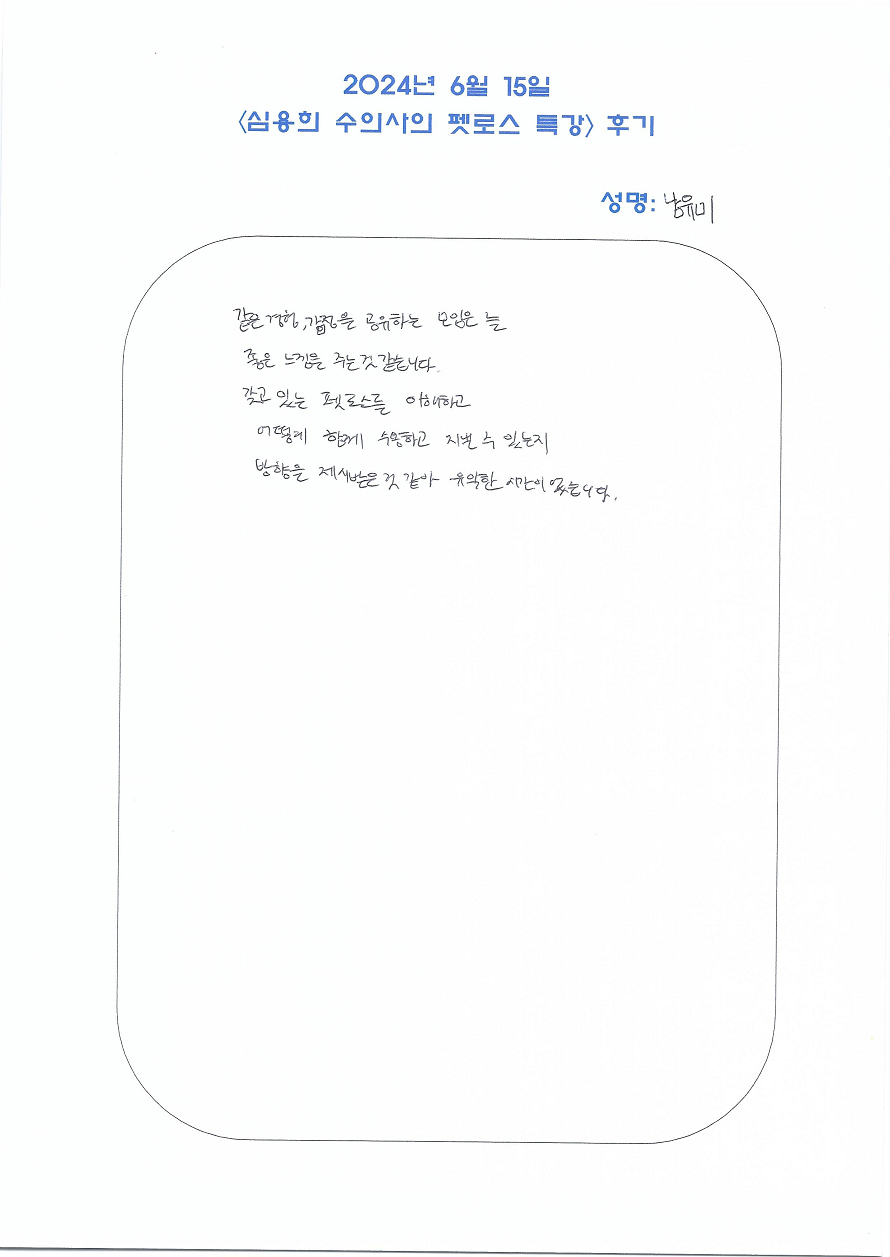 2024년 6월 15일
<심용희 수의사의 펫로스 특강> 후기
성명: 남유미
같은 경험, 감정을 공유하는 모임은 늘
좋은 느낌을 주는 것 같습니다.
갖고 있는 펫로스를 이해하고
어떻게 함께 수용하고 지낼 수 있는지
방향을 제시받은 것 같아 유익한 시간이었습니다.